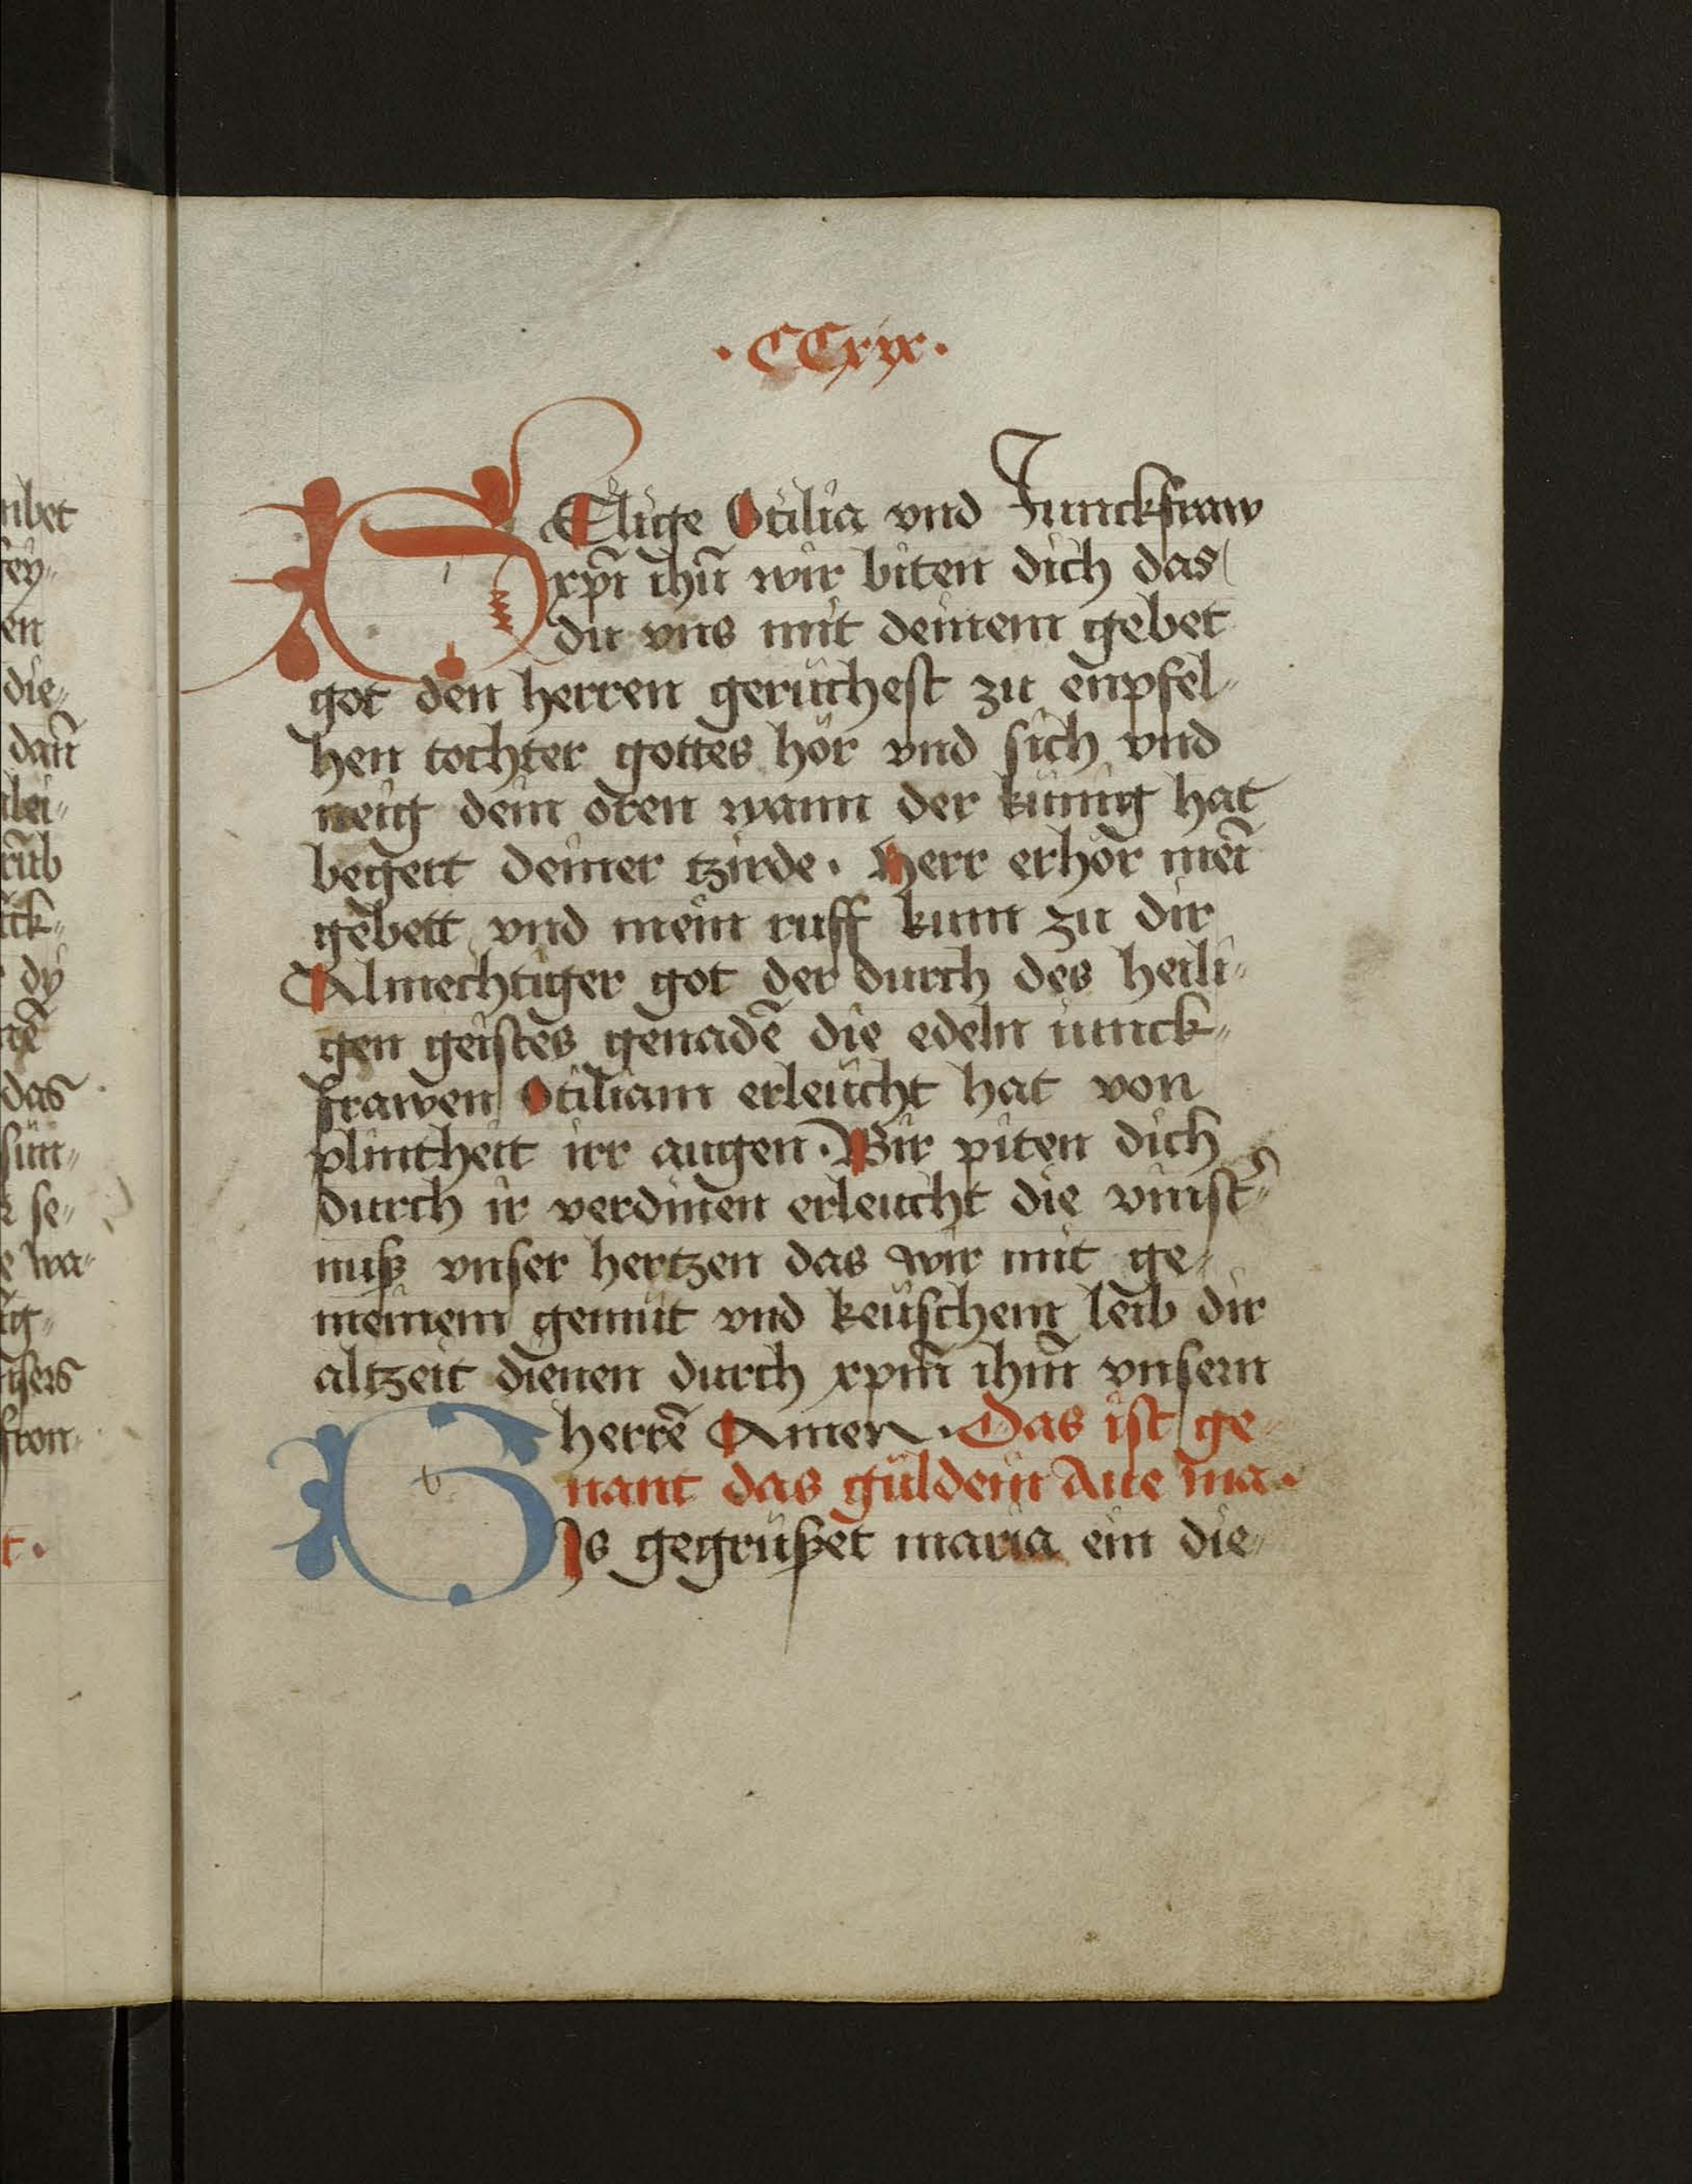 · CCxix ·
SElige Otilia vnd Junckfraw
xpī ihū wir biten dich das
du vns mit deinem gebet
got den herren geruchest zu enpfel⸗
hen tochter gottes hör vnd sich vnd
neig dein oren wann der künig hat
begert deiner tzirde · Herr erhör mei
gebett vnd mein ruff kum zu dir
Almechtiger got der durch des heili⸗
gen geistes genadē die edeln iunck⸗
frawen Otiliam erleücht hat von
plintheit irr augen · Wir piten dich
durch ir verdinen erleucht die vinst⸗
nuß vnser hertzen das wir mit ge⸗
meinem gemüt vnd keüschem leib dir
altzeit dienen durch xpm̄ ihm̄ vnsern
herrē Amen · Das ist ge⸗
nant das güldein Aue ma ·
BIs gegrüßet maria ein die⸗